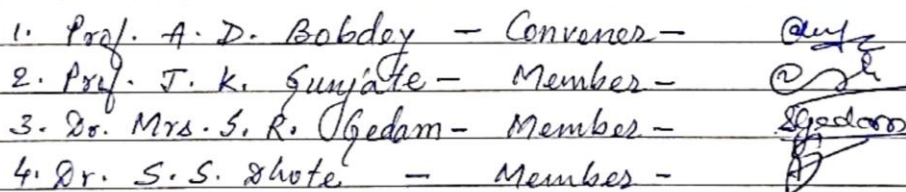 1. Prof. A. D. Bobdey - Convener -
2. Prof. J. K. Gunjate - Member -
3. Dr. Mrs. S. R. Gedam - Member - SGedam
4. Dr. S. S. Dhote - Member -